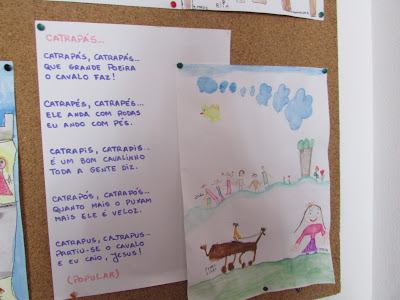 CATRAPÁS...
CATRAPÁS, CATRAPÁS...
QUE GRANDE POEIRA
O CAVALO FAZ!
CATRAPÉS, CATRAPÉS...
ELE ANDA COM RODAS
EU ANDO COM PÉS.
CATRAPIS, CATRAPIS...
É UM BOM CAVALINHO
TODA A GENTE DIZ.
CATRAPÓS, CATRAPÓS...
QUANTO MAIS O PUXAM
MAIS ELE É VELOZ.
CATRAPUS, CATRAPUS...
PARTIU-SE O CAVALO
E EU CAIO, JESUS!
(POPULAR)